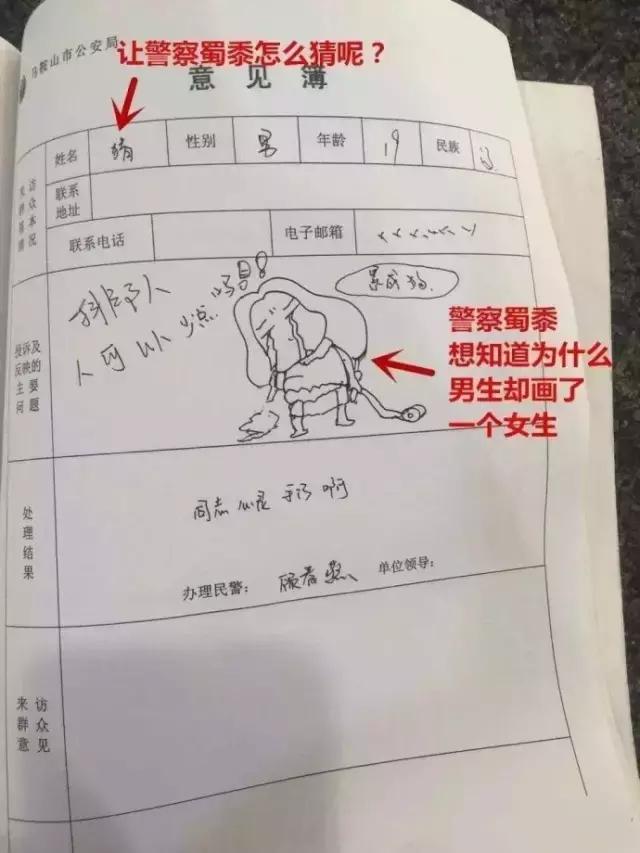 马鞍山市公安局
让警察蜀黍怎么猜呢？
意见簿
来访群众基本情况
姓名 性别 男 年龄 19 民族
联系地址
联系电话 电子邮箱
投诉及反映的主要问题
人可以少点吗！
警察蜀黍
想知道为什么
男生却画了
一个女生
处理结果
同志 啊
办理民警： 单位领导：
来访群众意见